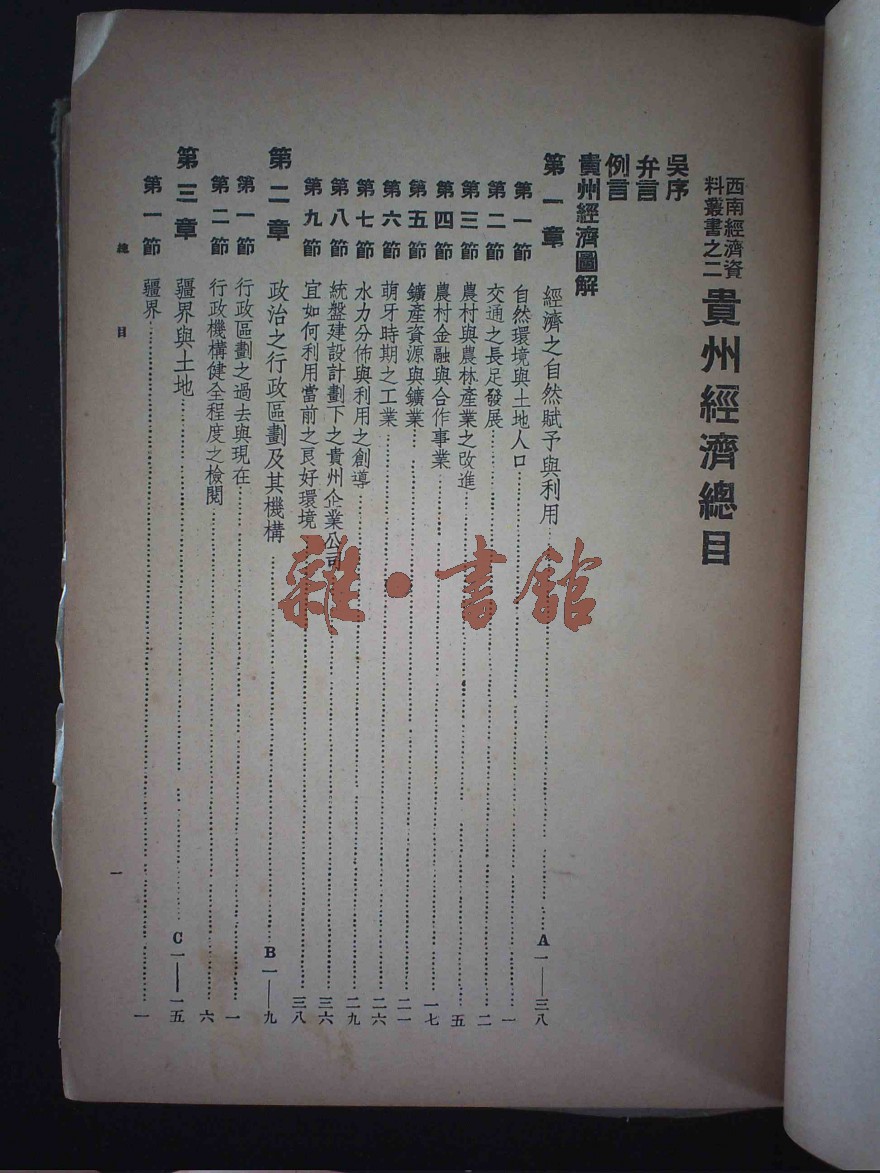 西南經濟資
料叢書之二
貴州經濟總目
吳序
弁言
例言
貴州經濟圖解
第一章 經濟之自然賦予與利用 A 一——三八
第一節 自然環境與土地人口 一
第二節 交通之長足發展 二
第三節 農村與農林產業之改進 五
第四節 農村金融與合作事業 一七
第五節 鑛產資源與鑛業 二一
第六節 萌牙時期之工業 二六
第七節 水力分佈與利用之創導 二九
第八節 統盤建設計劃下之貴州企業公司 三六
第九節 宜如何利用當前之良好環境 三八
第二章 政治之行政區劃及其機構 B 一——九
第一節 行政區劃之過去與現在 一
第二節 行政機構健全程度之檢閱 六
第三章 疆界與土地 C 一——一五
第一節 疆界 一
總目
一
雜·書館